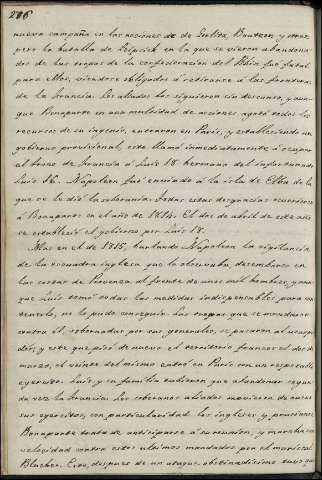 286
nueva campaña en las acciones de de Gorlitz, Bautzen, y otras;
pero la batalla de Leipsick en la que se vieron abandona-
dos de las tropas de la confederacion del Rhin fué fatal
para ellos, viendose obligados á retirarse á las fronteras
de la Francia. Los aliados los siguieron sin descanso, y aun-
que Bonaparte en una multitud de acciones agotó todos los
recursos de su ingenio, entraron en Paris, y estableciendo un
gobierno provisional, este llamó inmediatamente á ocupar
el trono de Francia á Luis 18. hermano del infortunado
Luis 16. Napoleon fué enviado á la isla de Elba de la
que se le dió la soberania. Todas estas desgracias ocurrieron
á Bonaparte en el año de 1814. El dos de abril de este año
se estableció el gobierno por Luis 18.
Mas en el de 1815, burlando Napoleon la vigilancia
de la escuadra inglesa que lo observaba, desembarcó en
las costas de Provenza al frente de unos mil hombres, y aun-
que Luis tomó todas las medidas indispensables para con-
tenerlo, no lo pudo conseguir. Las tropas que se mandaron
contra él, sobornadas por sus generales, se pasaron al usurpa-
dor, y este que pisó de nuevo el territorio frances el dos de
marzo, el veinte del mismo entró en Paris con un respetable
egercito. Luis y su familia tubieron que abandonar segun-
da vez la Francia. Los soberanos aliados movieron de nuevo
sus egercitos, con particularidad los ingleses y prusianos.
Bonaparte trata de anticiparse á su reunion, y marcha con
velocidad contra estos ultimos mandados por el mariscal
Blucher. Este, despues de un ataque obstinadisimo tuvo que